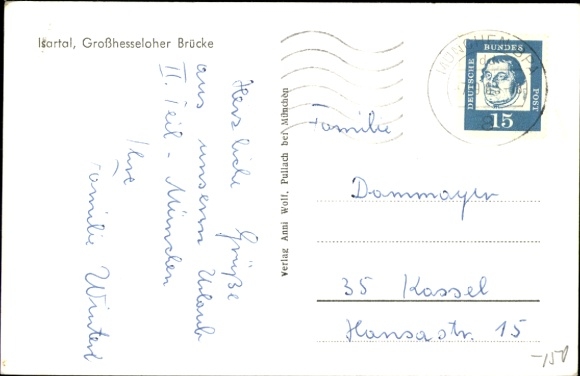 Isartal, Großhesseloher Brücke
Herzliche Grüße
aus unserm Urlaub
II. Teil - München
Ihre
Familie
Verlag Anni Wolf, Pullach bei München
MÜNCHEN
DEUTSCHE BUNDES POST
15
Familie
Dammayer
35 Kassel
Hansastr. 15
-150